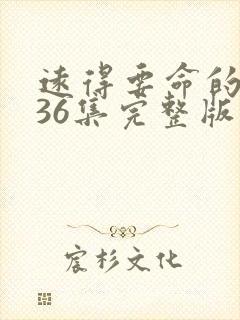 远得要命的
36集完整版
宸杉文化